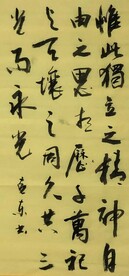 惟此獨立之精神自
由之思想歷千萬祀
与天壤之同久共三
光而永光